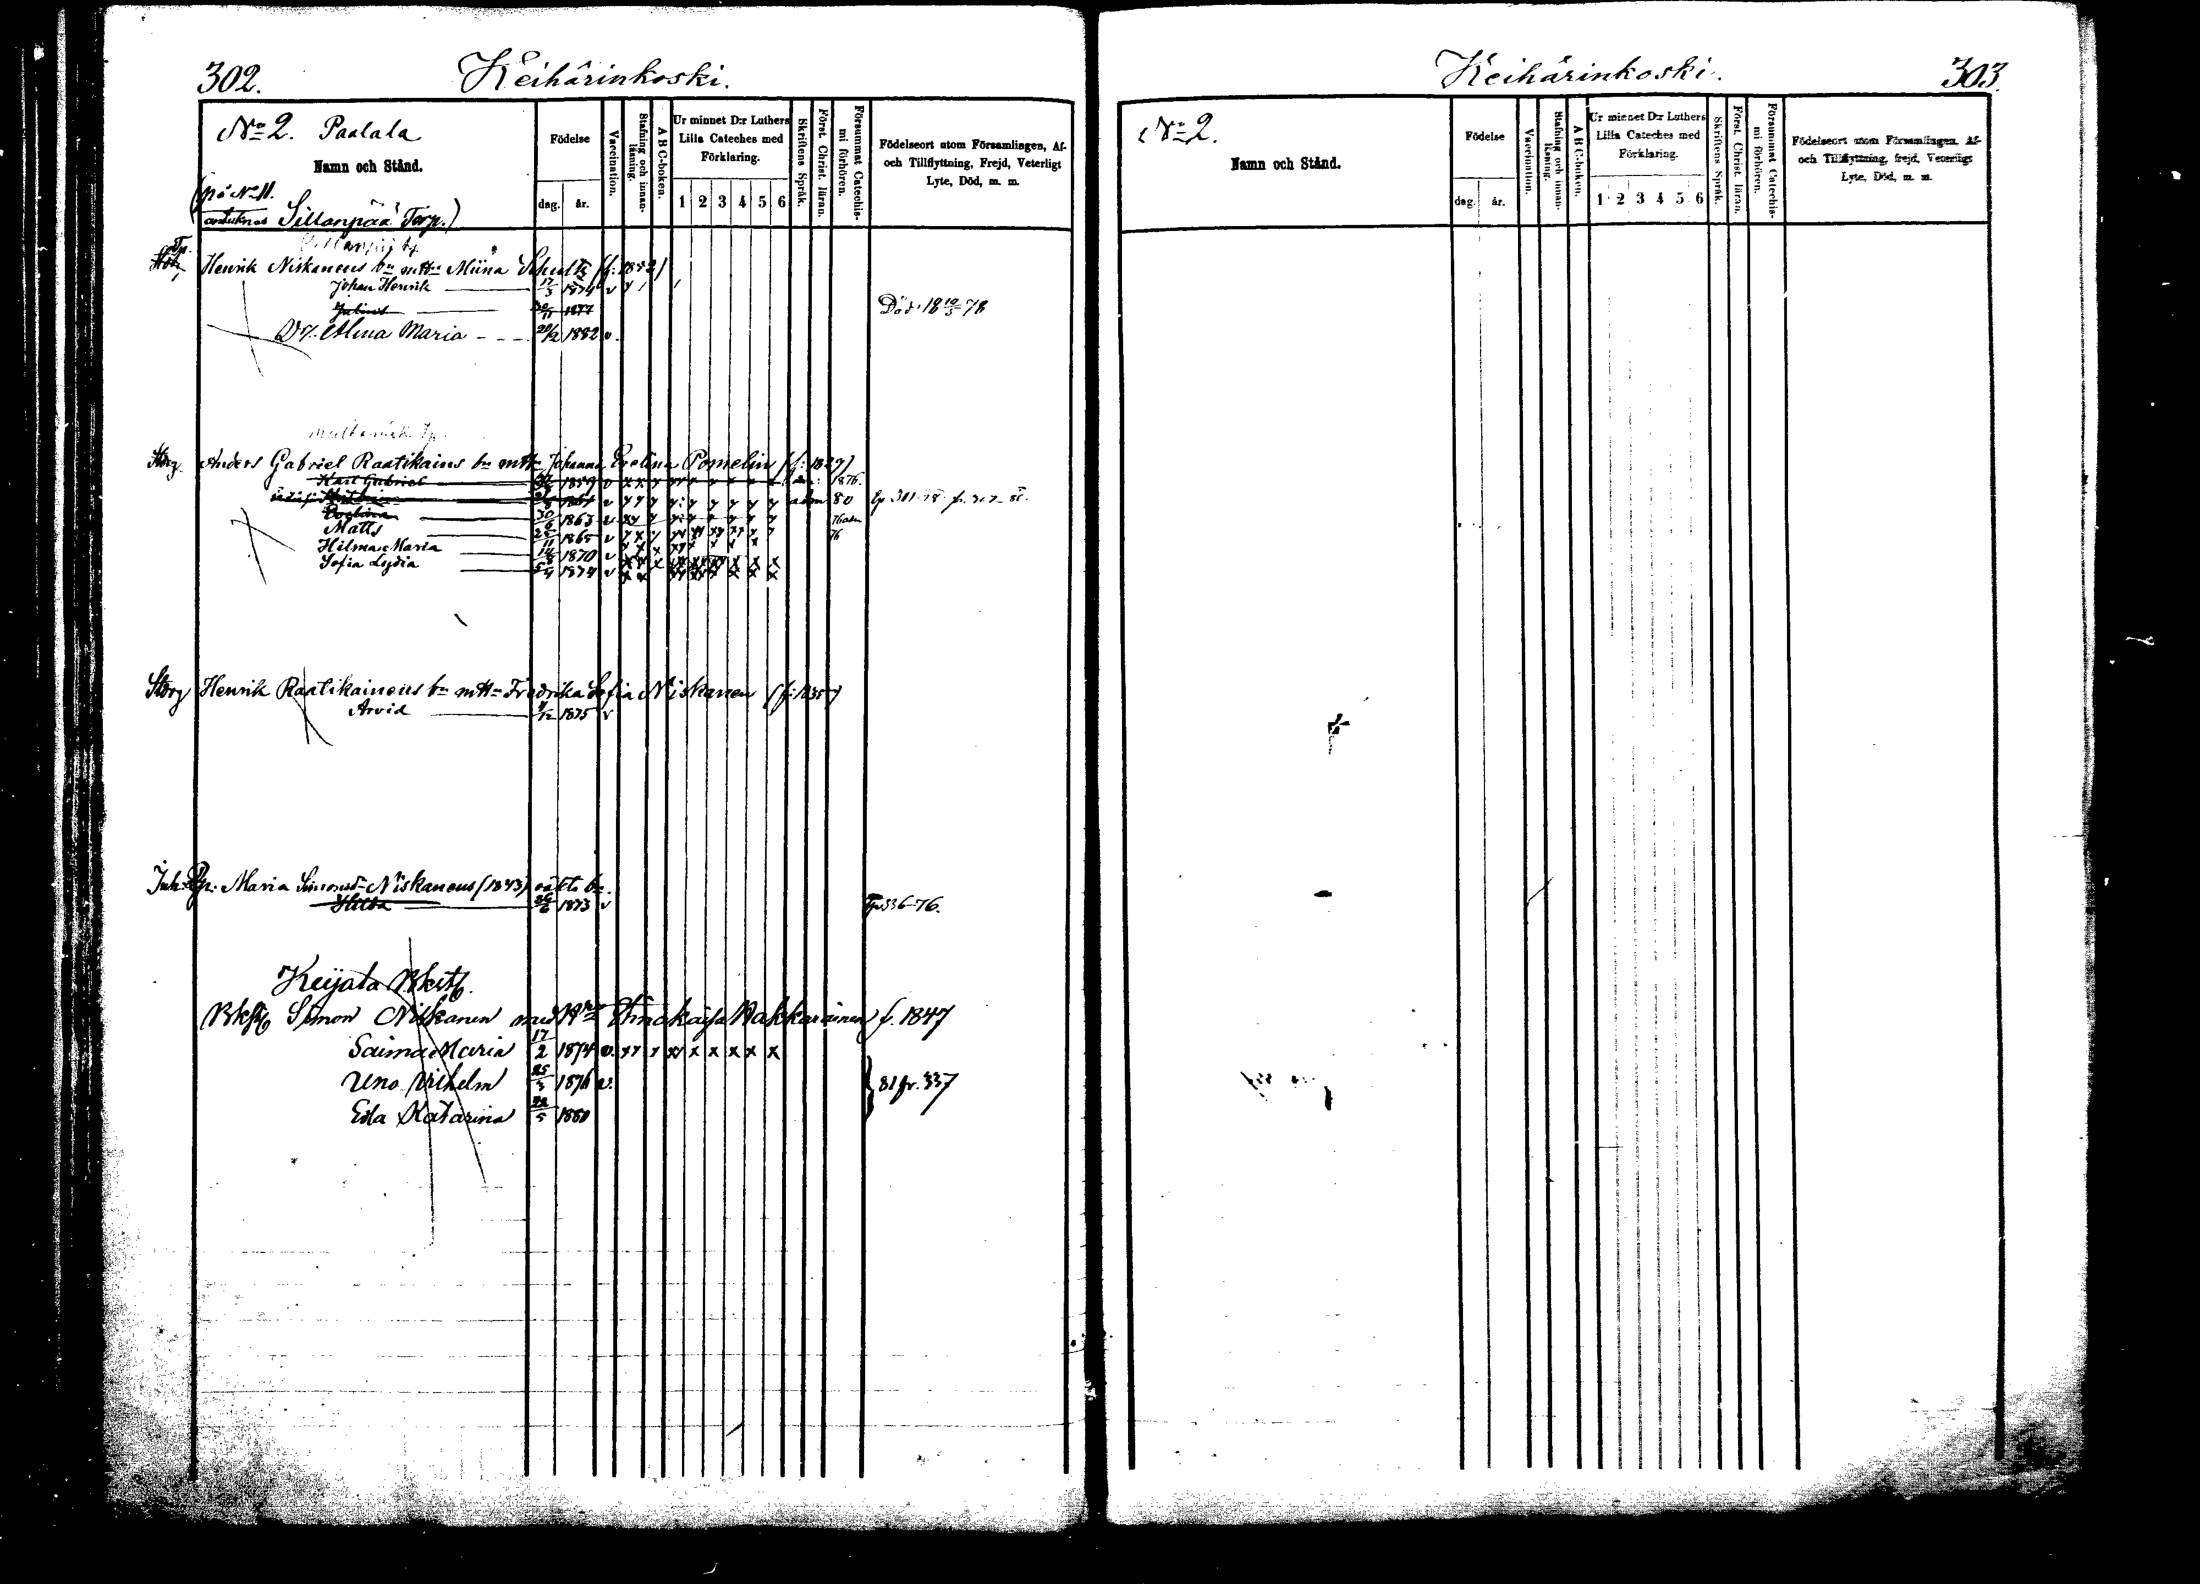 302. Keihärinkoski.
No 2. Paalala
Namn och Stånd.
Födelse
dag. år.
Vaccination.
Stafning och innanläsning.
A B C-boken.
Ur minnet D:r Luthers Lilla Cateches med Förklaring.
1 2 3 4 5 6
Skriftens Språk.
Först. Christ. läran.
Försummat Catechismi förhören.
Födelseort utom Församlingen, Af- och Tillflyttning, Frejd, Veterligt Lyte, Död, m. m.
(på No 11.
Sillanpää Torp.)
Tp. Henrik Niskanens bn m ttn Miina Schultz (f: 1852)
Johan Henrik 17/3 1874 v
Julius 1877 Död 18 10/3 78
Dr. Alma Maria 20/2 1882 v.
Storg. Anders Gabriel Raatikains bn m ttn Johanna Evelina Pomelin (f: 1829)
Karl Gabriel 1859 v x x 1876.
1861 v adm 80
Evelina 30/6 1863 v 76 adm
Matts 1865 v 76
Hilma Maria 14/8 1870 v
Sofia Lydia 5/4 1874 v
Storg Henrik Raatikainens bn m ttn Fredrika Sofia Niskanen (f: 1835)
Arvid 1/12 1875 v
Inh. Pp. Maria Simonsd. Niskanens (1843) oäkta bn.
Hilda 26/6 1873 v Tp 336-76.
Keijala Bkstf.
Bkstf Simon Niskanen med Hru Stina Kaisa Kakkarainen f. 1847
Saima Maria 17/2 1874 v. x x x x x x
Uno Vilhelm 25/3 1876 v.
81 fr. 337
Eda Katarina 22/5 1880
Keihärinkoski. 303.
No 2.
Namn och Stånd.
Födelse
dag. år.
Vaccination.
Stafning och innanläsning.
A B C-boken.
Ur minnet D:r Luthers Lilla Cateches med Förklaring.
1 2 3 4 5 6
Skriftens Språk.
Först. Christ. läran.
Försummat Catechismi förhören.
Födelseort utom Församlingen, Af- och Tillflyttning, frejd, Veterligt Lyte, Död, m. m.